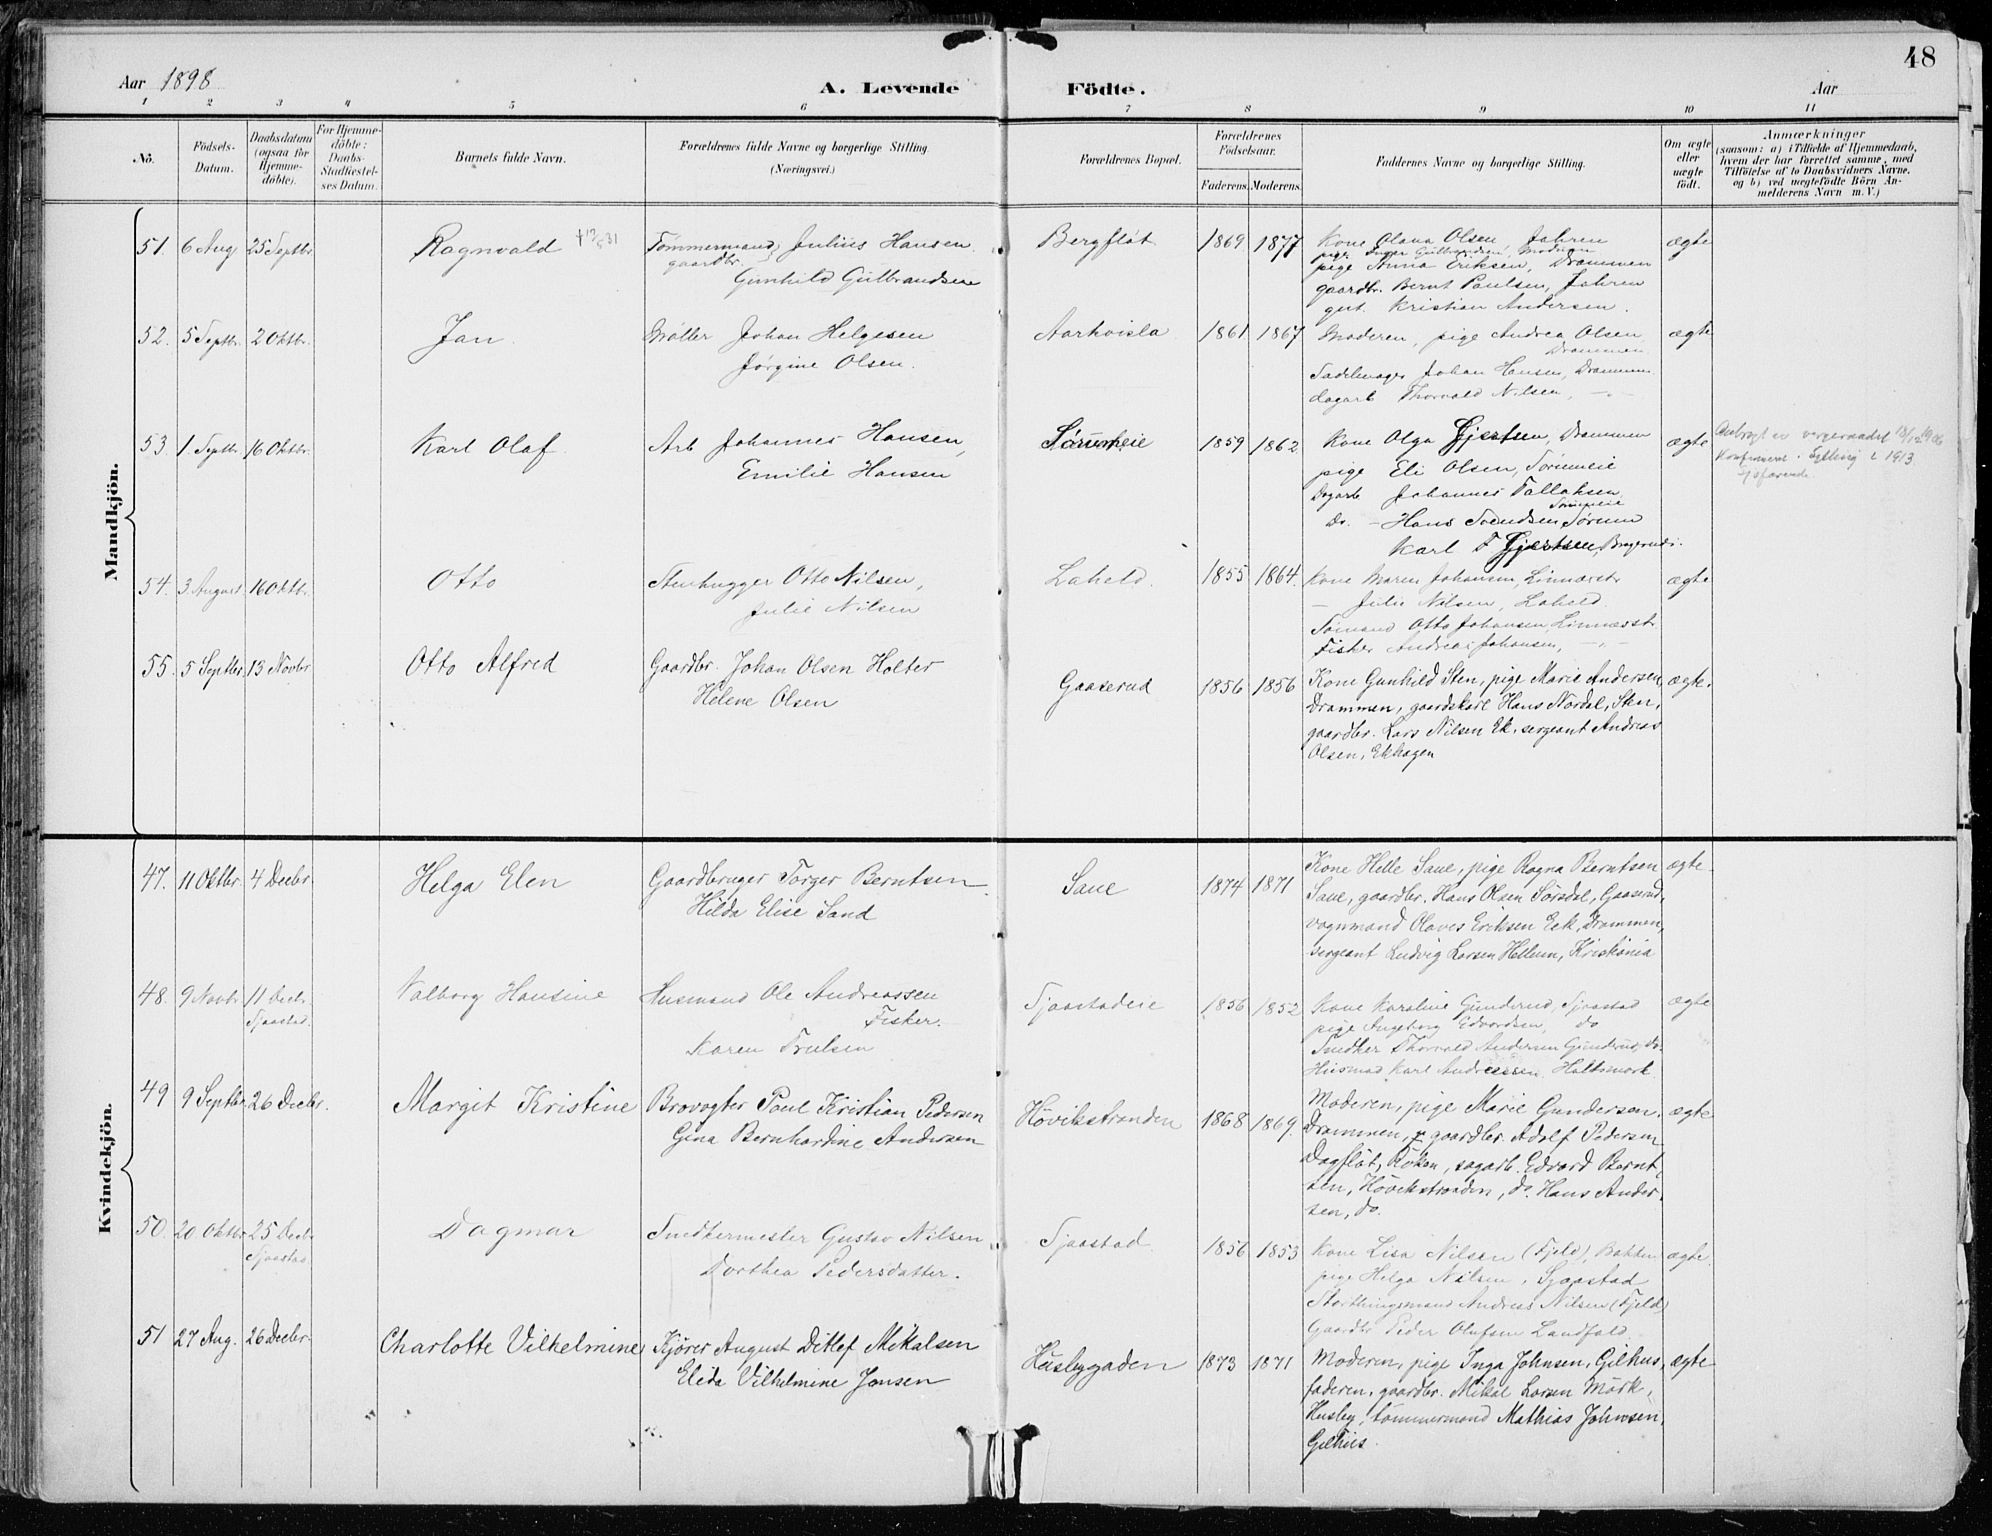 48
Aar 1898
A. Levende Födte.
Aar
1 2 3 4 5 6 7 8 9 10 11
No.
Födsels-
Datum.
Daabsdatum
(ogsaa for
Hjemme-
döbte).
For Hjemme-
döbte:
Daabs-
Stadfæstel-
ses Datum.
Barnets fulde Navn.
Forældrenes fulde Navne og borgerlige Stilling.
(Næringsvei.)
Forældrenes Bopæl.
Forældrenes
Födselsaar.
Faderens. Moderens.
Faddernes Navne og borgerlige Stilling.
Om ægte
eller
uægte
födt.
Anmærkninger
(saasom: a) i Tilfælde af Hjemmedaab,
hvem der har forrettet samme, med
Tilföielse af to Daabsvidners Navne.
og b) ved uægtefödte Börn An-
melderens Navn m. V.)
Mandkjön.
51. 6 Aug 25 Septbr. Ragnvald
Tømmermand, Julius Hansen
gaardbr.
Gunhild Gulbrandsen
Bergfløt 1869 1877
Kone Olava Olsen Jahren
pige Inger Gulbrandsen,
pige Anna Eriksen, Drammen
gaardbr. Bernt Paulsen, Jahren
gut. Kristian Andersen.
ægte
52. 5 Septbr. 2 Oktbr. Jan
Møller Johan Helgesen
Jørgine Olsen.
Aarkvisla 1861 1867
Moderen, pige Andrea Olsen
Drammen
Sadelmager Johan Hansen, Drammen
dagarb Thorvald Nilsen, -"-
ægte
53. 1 Septbr. 16 Oktbr. Karl Olaf
Arb Johannes Hansen,
Emilie Hansen
Sørumeie 1859 1862
Kone Olga Gjertsen, Drammen
pige Eli Olsen, Sørumeie
Dagarb Johannes Tallaksen
Sørumeie
Do. - Hans Svendsen Sørum
Karl F Gjertsen, Bragernæs.
ægte
Anbragt av vergeraadet 13/12 1906
Konfirmeret i Sylling i 1913.
54. 3 August 16 Oktbr. Otto
Stenhugger Otto Nilsen,
Julie Nilsen
Laheld. 1855 1864.
Kone Maren Johansen, Linnæsstr
— Julie Nilsen, Laheld.
Sømand Otto Johansen, Linnæsstr
Fisker Andreas Johansen, -"-
ægte
55. 5 Septbr. 13 Novbr Otto Alfred
Gaardbr. Johan Olsen Holter
Helene Olsen
Gaaserud 1856 1856
Kone Gunhild Sten, pige Marie Andersen
Drammen, gaardskarl Hans Nordal, Sten,
gaardbr. Lars Nilsen Ek, sergeant Andreas
Olsen, Ekhagen
ægte.
Kvindekjön.
47. 11 Oktbr. 4 Decbr. Helga Elen
Gaardbruger Torger Berntsen
Hilda Elise Sand
Saue 1874 1871
Kone Helle Saue, pige Ragna Berntsen
Saue, gaardbr. Hans Olsen Sørsdal, Gaaserud,
vognmand Olaves Eriksen Eek, Drammen,
sergeant Ludvig Larsen Hellum, Kristiania
ægte.
48. 9 Novbr 11 Decbr.
Tjaastad.
Valborg Hansine
Husmand Ole Andreassen
Fisker.
Karen Trulsen
Tjaastadeie 1856 1852
Kone Karoline Gunderud, Tjaastad
pige Ingeborg Edvardsen, do
Snedker Thorvald Andersen Gunderud, do.
Husmand Karl Andreassen, Haltsmork
ægte
49 9 Septbr. 26 Decbr. Margit Kristine
Brovogter Paul Kristian Pedersen
Gina Bernhardine Andersen
Høvikstranden 1868 1869.
Moderen, pige Marie Gundersen,
Drammen, gaardbr. Adolf Pedersen
Dagfløt, Røken, sagarb. Edvard Bernt-
sen, Høvikstranden, do. Hans Ander-
sen, do.
ægte
50. 20 Oktbr 25 Decbr
Tjaastad
Dagmar
Snedkermester Gustav Nilsen
Dorthea Pedersdatter.
Tjaastad 1856 1853
Kone Lisa Nilsen (Fjeld), Bakken
pige Helga Nilsen, Tjaastad
Storthingsmand Andreas Nilsen (Fjeld)
Gaardbr Peder Olufsen Landfald.
ægte.
51 27 Aug. 26 Decbr. Charlotte Vilhelmine
Kjører August Ditlef Mikalsen
Elida Vilhelmine Jonsen
Husbygaden 1873 1871
Moderen, pige Inga Johnsen, Gilhus,
faderen, gaardbr. Mikal Larsen Mørk,
Husby, tømmermand Mathias Johnsen,
Gilhus.
ægte